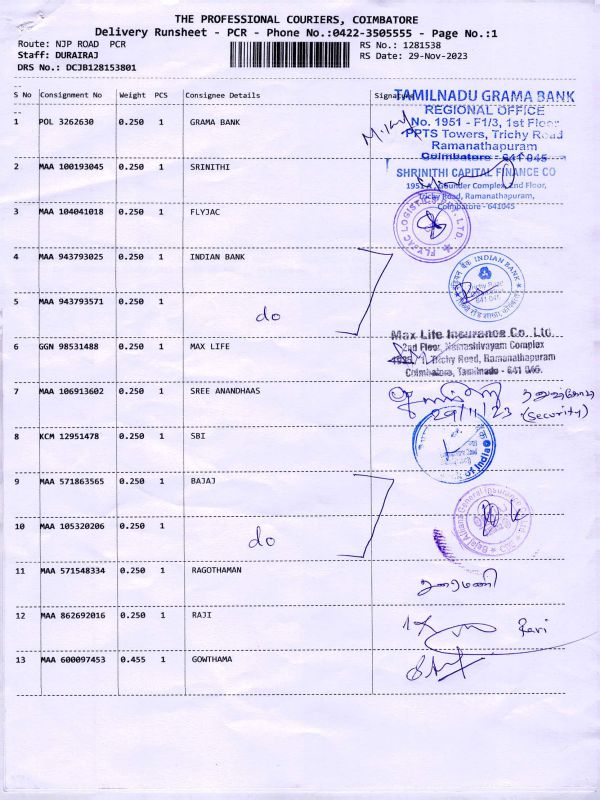 THE PROFESSIONAL COURIERS, COIMBATORE
Delivery Runsheet - PCR - Phone No.:0422-3505555 - Page No.:1
Route: NJP ROAD PCR
Staff: DURAIRAJ
DRS No.: DCJB128153801
RS No.: 1281538
RS Date: 29-Nov-2023
S No Consignment No Weight PCS Consignee Details Signature
1 POL 3262630 0.250 1 GRAMA BANK
TAMILNADU GRAMA BANK
REGIONAL OFFICE
No. 1951 - F1/3, 1st Floor
PPTS Towers, Trichy Road
Ramanathapuram
Coimbatore - 641 045
2 MAA 100193045 0.250 1 SRINITHI
SHRINITHI CAPITAL FINANCE CO
1951 A, Gounder Complex, 2nd Floor,
Trichy Road, Ramanathapuram,
Coimbatore - 641045
3 MAA 104041018 0.250 1 FLYJAC
FLYJAC LOGISTICS LTD.
4 MAA 943793025 0.250 1 INDIAN BANK
INDIAN BANK
Trichy Road
641 045
5 MAA 943793571 0.250 1
do
6 GGN 98531488 0.250 1 MAX LIFE
Max Life Insurance Co. Ltd.
2nd Floor, Namashivayam Complex
Trichy Road, Ramanathapuram
Coimbatore, Tamilnadu - 641 045.
7 MAA 106913602 0.250 1 SREE ANANDHAAS
29/11/23
(Security)
8 KCM 12951478 0.250 1 SBI
of India
9 MAA 571863565 0.250 1 BAJAJ
Bajaj Allianz General Insurance
10 MAA 105320206 0.250 1
do
11 MAA 571548334 0.250 1 RAGOTHAMAN
துரைமணி
12 MAA 862692016 0.250 1 RAJI
Ravi
13 MAA 600097453 0.455 1 GOWTHAMA